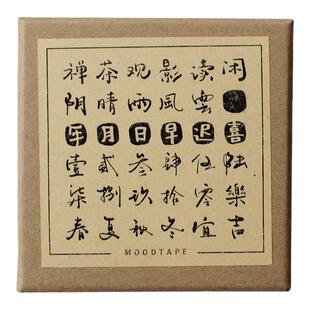 禅茶观影读闲
阴晴雨風雲
年月日早迟喜
壹贰叁肆伍陸
柒捌玖拾零樂
春夏秋冬宜吉
MOODTAPE